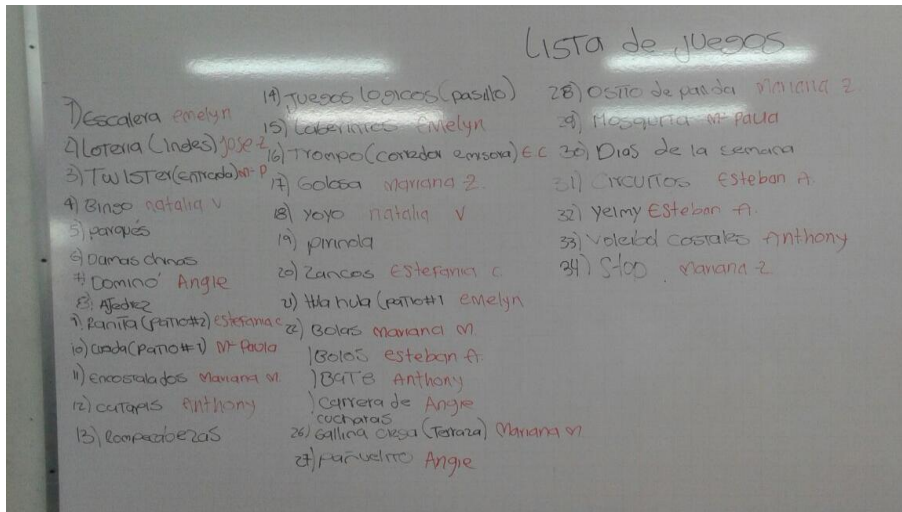 Lista de juegos
1) Escalera Emelyn
2) Loteria (Ingles) Jose-Z
3) Twister (entrada) M-P
4) Bingo natalia V
5) parqués
6) Damas chinas
7) Dominó Angie
8) Ajedrez
9) Ranita (patio#2) Estefania C
10) Cuada (patio#1) M-Paula
11) encostalados Mariana M.
12) catapis Anthony
13) Rompecabezas
14) Juegos Logicos (pasillo)
15) Laberintos Emelyn
16) Trompo (corredor emisora) E.C
17) Golosa Mariana-Z.
18) yoyo natalia V
19) pirinola
20) Zancos Estefania C.
21) Hula hula (patio#1 Emelyn
22) Bolas Mariana M.
)Bolos Esteban A.
)Bate Anthony
)Carrera de Angie
cucharas
26) Gallina ciega (Terraza) Mariana M
27) pañuelito Angie
28) Osito de panda Mariana Z
29) M-Paula
30) Dias de la semana
31) Circuitos Esteban A.
32) Yelmy Esteban A.
33) Voleibol costales Anthony
34) Stop Mariana-Z